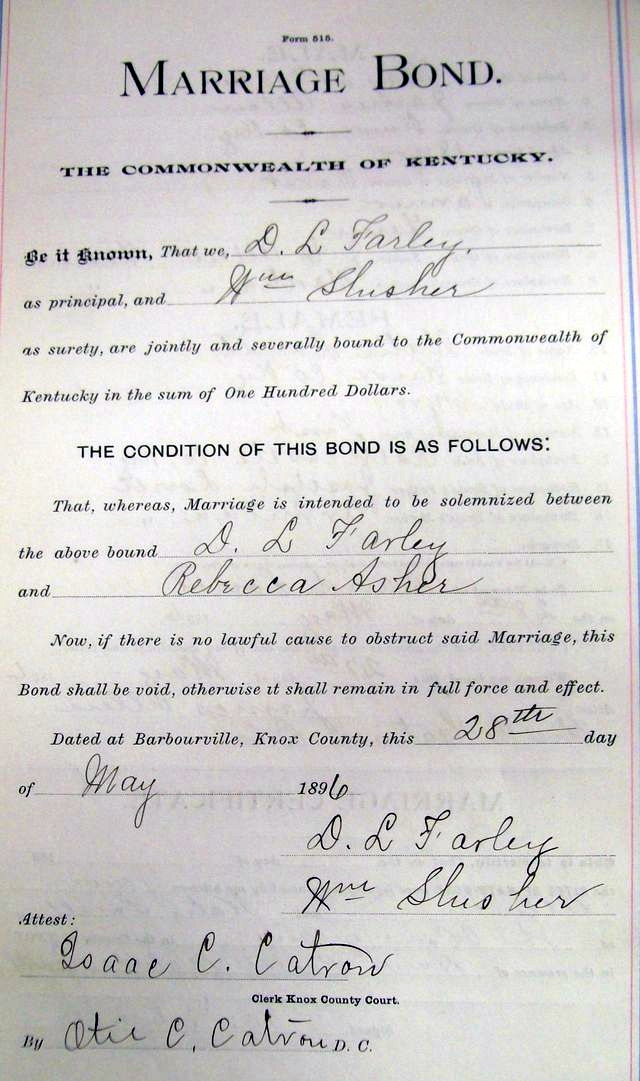 Form 515.
MARRIAGE BOND.
THE COMMONWEALTH OF KENTUCKY.
Be it Known, That we, D. L Farley,
as principal, and Wm Slusher
as surety, are jointly and severally bound to the Commonwealth of
Kentucky in the sum of One Hundred Dollars.
THE CONDITION OF THIS BOND IS AS FOLLOWS:
That, whereas, Marriage is intended to be solemnized between
the above bound D. L Farley
and Rebecca Asher
Now, if there is no lawful cause to obstruct said Marriage, this
Bond shall be void, otherwise it shall remain in full force and effect.
Dated at Barbourville, Knox County, this 28th day
of May 1896
D. L Farley
Wm Slusher
Attest:
Isaac C. Catron
Clerk Knox County Court.
By Otie C. Catron D. C.